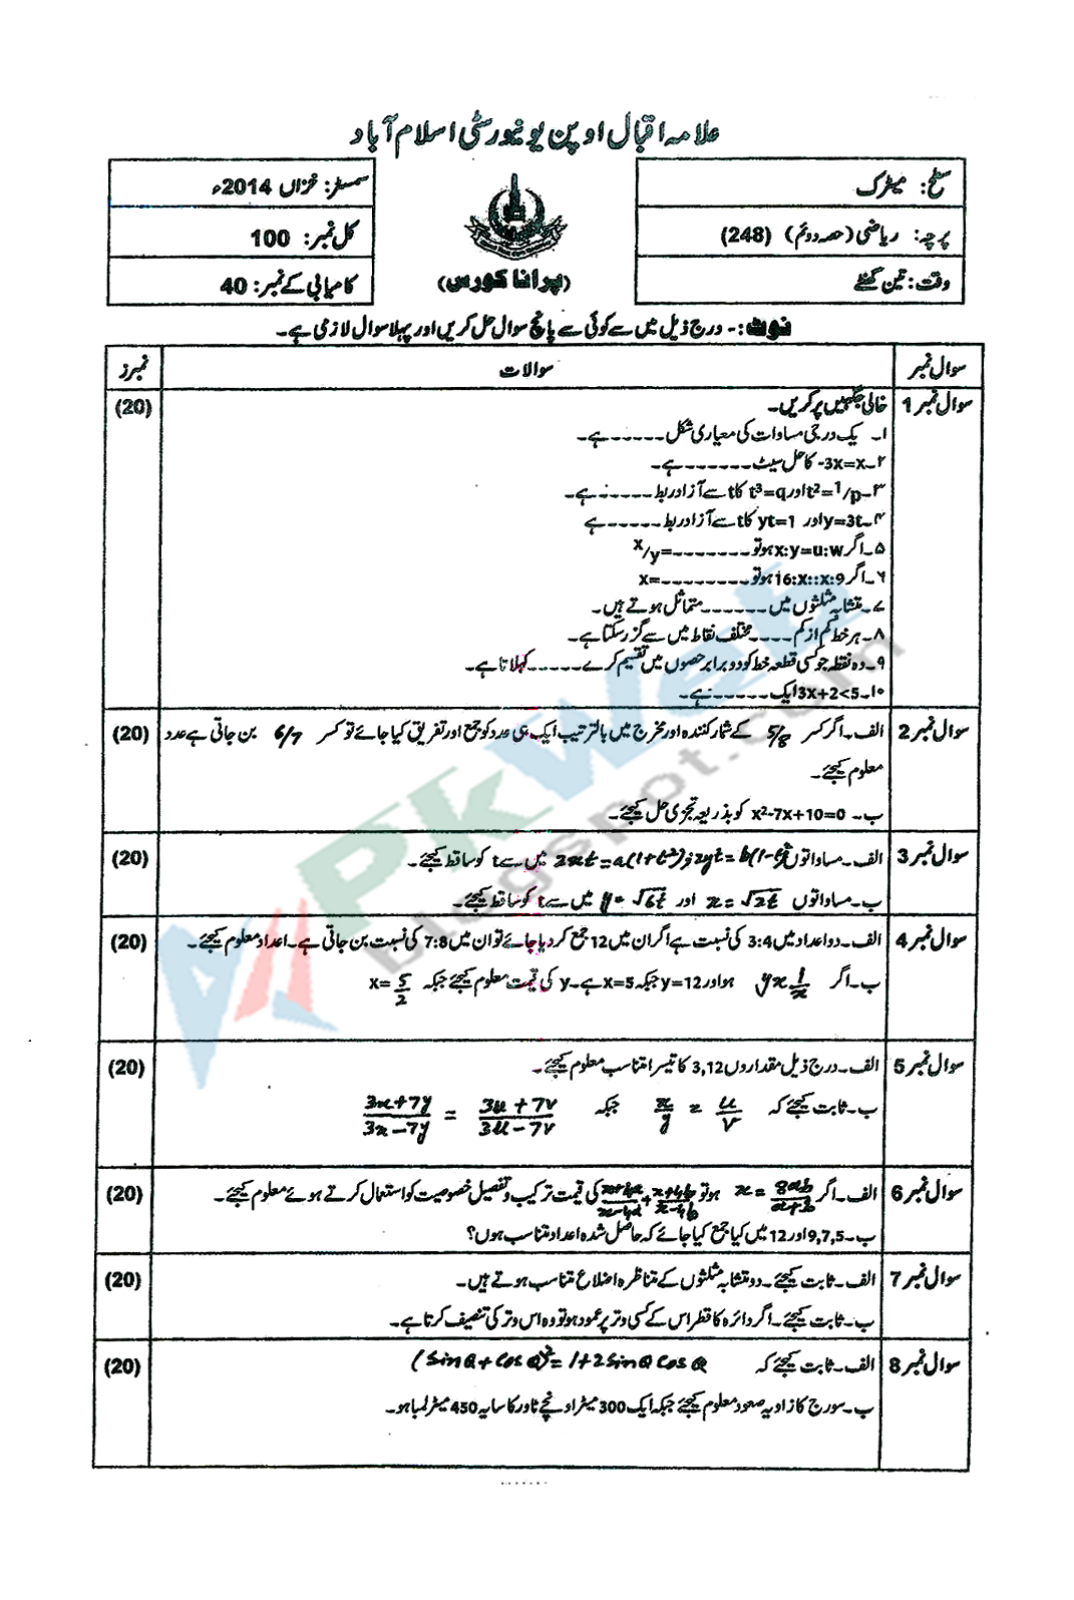 علامہ اقبال اوپن یونیورسٹی اسلام آباد
سطح: میٹرک
پرچہ: ریاضی (حصہ دوئم) (248)
وقت: تین گھنٹے
(پرانا کورس)
سمسٹر: خزاں 2014ء
کل نمبر: 100
کامیابی کے نمبر: 40
نوٹ:- درج ذیل میں سے کوئی سے پانچ سوال حل کریں اور پہلا سوال لازمی ہے۔
سوال نمبر سوالات نمبرز
سوال نمبر 1 خالی جگہیں پر کریں۔ (20)
۱۔ یک درجی مساوات کی معیاری شکل ------ ہے۔
۲۔ -3x=x کا حل سیٹ ------- ہے۔
۳۔ t²=1/p اور t³=q کا t سے آزاد ربط ------ ہے۔
۴۔ y=3t اور yt=1 کا t سے آزاد ربط ------ ہے
۵۔ اگر x:y=u:w ہو تو -------- =x/y
۶۔ اگر 16:x::x:9 ہو تو --------- =x
۷۔ متشابہ مثلثوں میں ------- متماثل ہوتے ہیں۔
۸۔ ہر خط کم از کم ---- مختلف نقاط میں سے گزر سکتا ہے۔
۹۔ وہ نقطہ جو کسی قطعہ خط کو دو برابر حصوں میں تقسیم کرے ----- کہلاتا ہے۔
۱۰۔ 3x+2<5 ایک ------ ہے۔
سوال نمبر 2 الف۔ اگر کسر 5/8 کے شمار کنندہ اور مخرج میں بالترتیب ایک ہی عدد کو جمع اور تفریق کیا جائے تو کسر 6/7 بن جاتی ہے عدد (20)
معلوم کیجئے۔
ب۔ x²-7x+10=0 کو بذریعہ تجزی حل کیجئے۔
سوال نمبر 3 الف۔ مساواتوں 2yt=b(1-t²) و 2xt=a(1+t²) میں سے t کو ساقط کیجئے۔ (20)
ب۔ مساواتوں x=√2t اور y=√6t میں سے t کو ساقط کیجئے۔
سوال نمبر 4 الف۔ دو اعداد میں 3:4 کی نسبت ہے اگر ان میں 12 جمع کر دیا جائے تو ان میں 7:8 کی نسبت بن جاتی ہے۔ اعداد معلوم کیجئے۔ (20)
ب۔ اگر y∝1/x ہو اور y=12 جبکہ x=5 ہے۔ y کی قیمت معلوم کیجئے جبکہ x=5/2
سوال نمبر 5 الف۔ درج ذیل مقداروں 3,12 کا تیسرا متناسب معلوم کیجئے۔ (20)
ب۔ ثابت کیجئے کہ x/y = u/v جبکہ (3x+7y)/(3x-7y) = (3u+7v)/(3u-7v)
سوال نمبر 6 الف۔ اگر x=8ab/(a+b) ہو تو (x+4a)/(x-4a) + (x+4b)/(x-4b) کی قیمت ترکیب و تفصیل خصوصیت کو استعمال کرتے ہوئے معلوم کیجئے۔ (20)
ب۔ 9,7,5 اور 12 میں کیا جمع کیا جائے کہ حاصل شدہ اعداد متناسب ہوں؟
سوال نمبر 7 الف۔ ثابت کیجئے۔ دو متشابہ مثلثوں کے متناظرہ اضلاع متناسب ہوتے ہیں۔ (20)
ب۔ ثابت کیجئے۔ اگر دائرہ کا قطر اس کے کسی وتر پر عمود ہو تو وہ اس وتر کی تنصیف کرتا ہے۔
سوال نمبر 8 الف۔ ثابت کیجئے کہ (SinQ+CosQ)²=1+2SinQCosQ (20)
ب۔ سورج کا زاویہ صعود معلوم کیجئے جبکہ ایک 300 میٹر اونچے ٹاور کا سایہ 450 میٹر لمبا ہو۔
PkWeb
blogspot.com